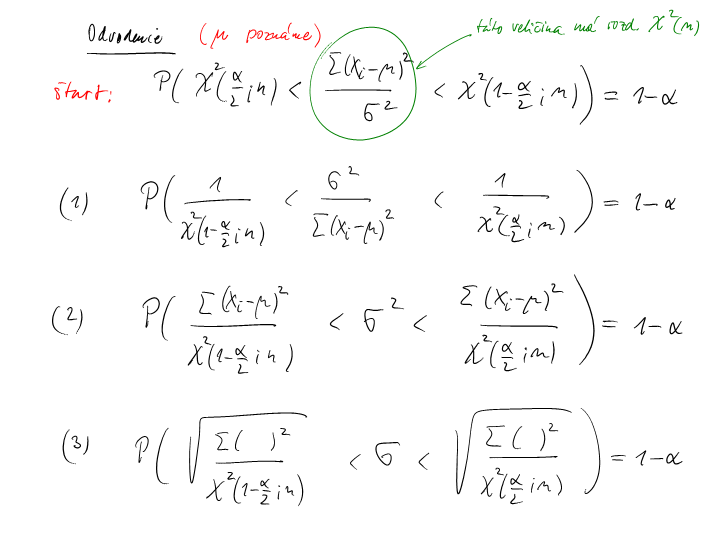 Odvodenie (μ poznáme)
táto veličina má rozd. χ²(n)
štart: P( χ²(α/2; n) < Σ(Xᵢ-μ)²/σ² < χ²(1-α/2; n) ) = 1-α
(1) P( 1/χ²(1-α/2; n) < σ²/Σ(Xᵢ-μ)² < 1/χ²(α/2; n) ) = 1-α
(2) P( Σ(Xᵢ-μ)²/χ²(1-α/2; n) < σ² < Σ(Xᵢ-μ)²/χ²(α/2; n) ) = 1-α
(3) P( √(Σ( )²/χ²(1-α/2; n)) < σ < √(Σ( )²/χ²(α/2; n)) ) = 1-α